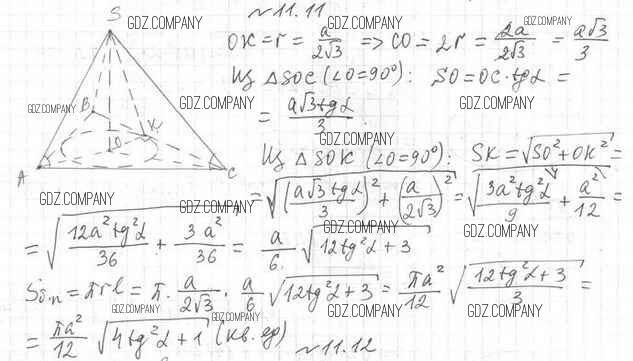 S
GDZ.COMPANY
~ 11.11
GDZ.COMPANY GDZ.COMPANY
OK = r = a/(2√3) => CO = 2r = 2a/(2√3) = a√3/3
Из △SOC (∠O=90°): SO = OC·tgα =
GDZ.COMPANY GDZ.COMPANY GDZ.COMPANY
B K O
= a√3 tgα/3
GDZ.COMPANY
Из △SOK (∠O=90°): SK = √(SO² + OK²) =
A C
GDZ.COMPANY GDZ.COMPANY
= √((a√3 tgα/3)² + (a/(2√3))²) = √(3a² tg²α/9 + a²/12) =
GDZ.COMPANY GDZ.COMPANY
= √(12a² tg²α/36 + 3a²/36) = a/6 √(12tg²α + 3)
Sб.п = πrl = π · a/(2√3) · a/6 √(12tg²α + 3) = πa²/12 √((12tg²α + 3)/3) =
GDZ.COMPANY GDZ.COMPANY GDZ.COMPANY GDZ.COMPANY
= πa²/12 √(4tg²α + 1) (кв. ед)
~ 11.12